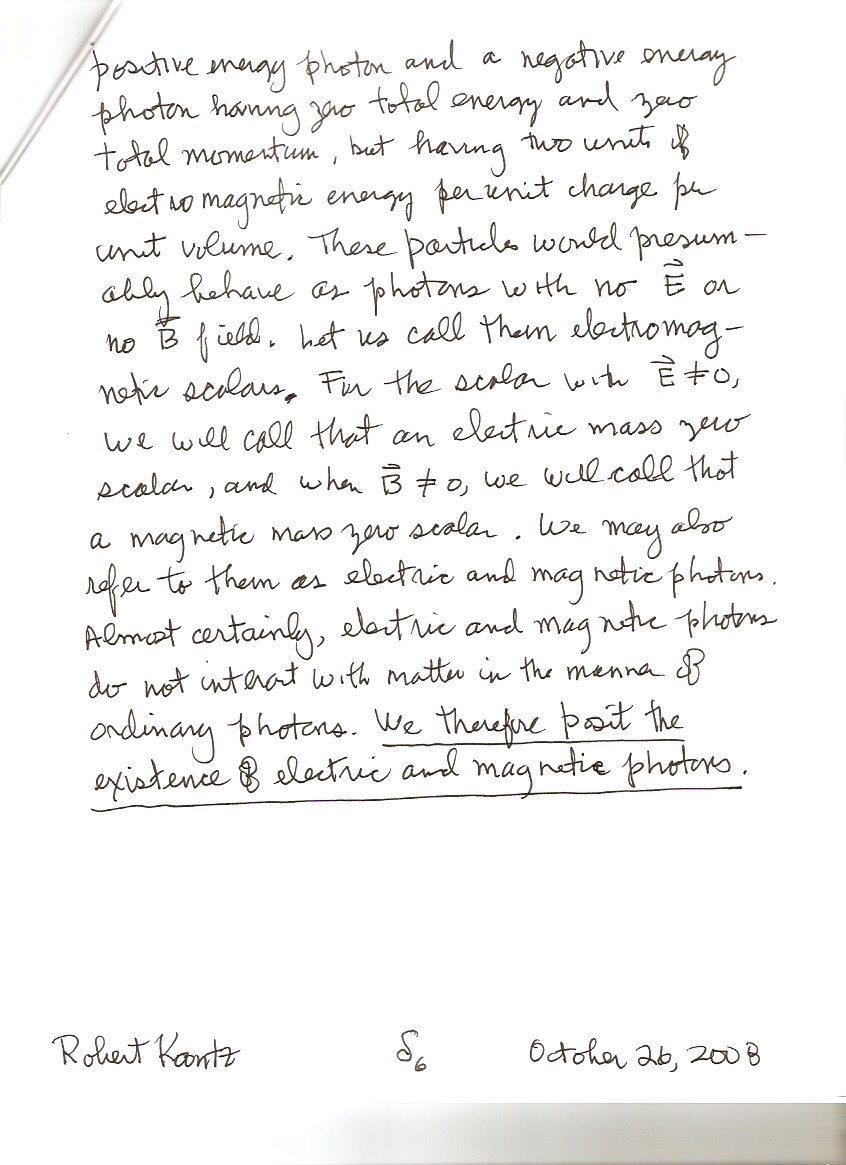 positive energy photon and a negative energy
photon having zero total energy and zero
total momentum, but having two units of
electromagnetic energy per unit charge per
unit volume. These particles would presum-
ably behave as photons with no E⃗ or
no B⃗ field. Let us call them electromag-
netic scalars. For the scalar with E⃗ ≠ 0,
we will call that an electric mass zero
scalar, and when B⃗ ≠ 0, we will call that
a magnetic mass zero scalar. We may also
refer to them as electric and magnetic photons.
Almost certainly, electric and magnetic photons
do not interact with matter in the manner of
ordinary photons. We therefore posit the
existence of electric and magnetic photons.
Robert Koontz δ6 October 26, 2008